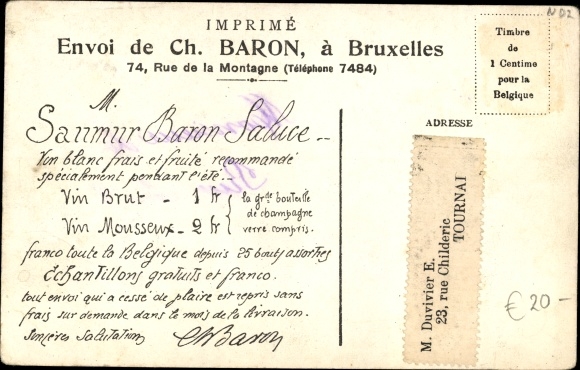 IMPRIMÉ
Envoi de Ch. BARON, à Bruxelles
74, Rue de la Montagne (Téléphone 7484)
M.
Saumur Baron Saluce
Vin blanc frais et fruité recommandé
spécialement pendant l'été
Vin Brut - 1 fr
Vin Mousseux - 2 fr
la grde bouteille
de champagne
verre compris.
franco toute la Belgique depuis 25 bouts assorties
Échantillons gratuits et franco.
tout envoi qui a cessé de plaire est repris sans
frais sur demande dans le mois de la livraison.
Sincères salutations
Ch Baron
Timbre
de
1 Centime
pour la
Belgique
ADRESSE
M. Duvivier E.
23, rue Childeric
TOURNAI
€ 20 -